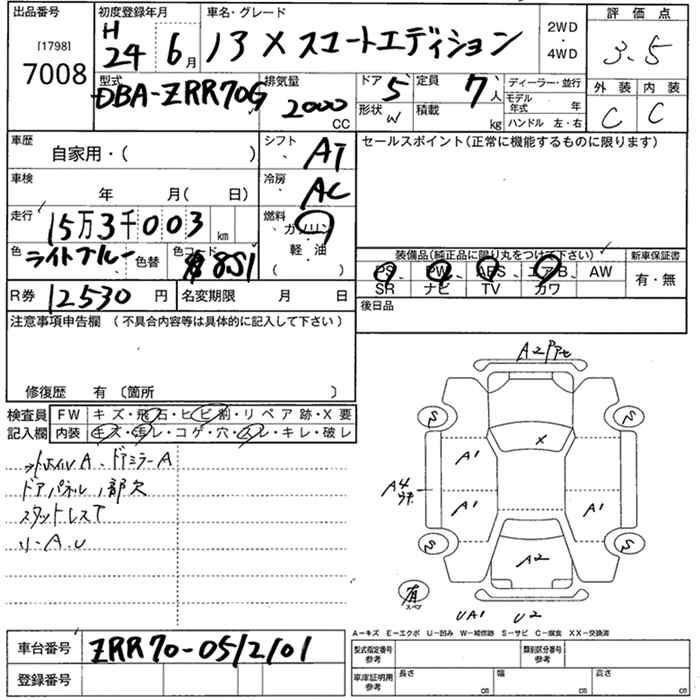 出品番号
[1798]
7008
初度登録年月
H
24 6月
車名・グレード
13 X スコートエディション
2WD
・
4WD
評価点
3.5
型式
DBA-ZRR70G
排気量
2000
CC
ドア 5
形状 W
定員 7人
積載 kg
ディーラー・並行
モデル年式 年
ハンドル 左・右
外装 内装
C C
車歴
自家用・( )
シフト AT
車検
年 月( 日)
冷房 AC
走行
15万3千003 km
燃料
ガソリン
軽・油
( )
色 ライトブルー 色替
色コード 8S1
セールスポイント(正常に機能するものに限ります)
装備品(純正品に限り丸をつけて下さい)
PS PW ABS エアB AW
SR ナビ TV カワ
新車保証書
有・無
R券 12530 円
名変期限 月 日
後日品
注意事項申告欄 (不具合内容等は具体的に記入して下さい)
修復歴 有 〔箇所 〕
検査員
記入欄
FW キズ・飛石・ヒビ割・リペア跡・X要
内装 キズ・汚レ・コゲ・穴・スレ・キレ・破レ
A、ドアミラーA
ドアパネル一部欠
スタットレスT
リーA.U
A2
S S
X
A1
A4
A1 A1
S S
A2
有
スペア
UA1 U2
A−キズ E−エクボ U−凹み W−補修跡 S−サビ C−腐食 XX−交換済
車台番号 ZRR70-0512101
登録番号
型式指定番号
参考
類別区分番号
参考
車庫証明用
参考
長さ cm
幅 cm
高さ cm